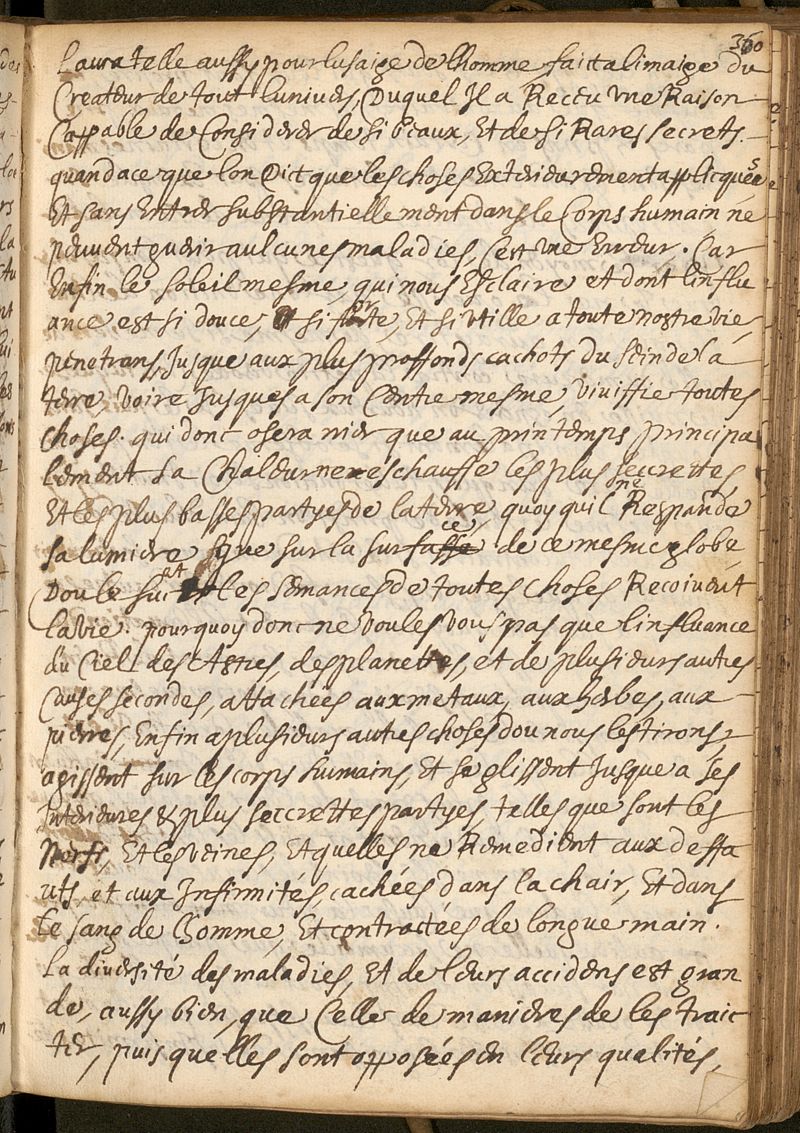 360
Laura telle aussy pour lusaige de lhomme faict a limaige du
Createur de tout lunivers, Duquel Il a Receu vne Raison
Cappable de Considerer de si beaux, Et de si Rares secrets.
quand a ce que lon Dict que les choses Exterieurement applicquées
Et sans Entrer substantiellement dans le Corps humain ne
peuvent guerir aulcunes maladies, C'est vne Erreur. Car
Enfin le soleil mesme, qui nous Esclaire et dont linflu
ance est si douce, Et si forte, Et si vtille a toute nostre vie,
penetrans Jusque aux plus proffonds cachots du sein de la
terre, voire Jusques a son Centre mesme, viviffie toutes
choses. qui donc osera nier que au printemps principa
lement sa Chaleur ne reschauffe les plus seccrettes,
Et les plus basses partyes de la terre, quoy quil ne Respande
sa lumiere que sur la surfasse ce de ce mesme globe,
Dou le suc et les semances de toutes choses Recoivent
la vie. pourquoy donc ne voules vous pas que linfluance
du Ciel des Astres, des planettes, et de plusieurs autres
Causes secondes, attachées aux metaux, aux herbes, aux
pierres, Enfin a plusieurs autres choses dou nous les tirons,
agissent sur les corps humains, Et se glissent Jusque a ses
Interieures & plus seccrettes partyes, telles que sont les
Nerfs, Et les veines, Et quelles ne Remedient aux deffa
uts, et aux Infirmités, cachées dans la chair, Et dans
le sang de lhomme, Et contractées de longue main.
La diversité des maladies, Et de leurs accidens est gran
de, aussy bien, que Celle de manieres de les traic
ter, puis quelles sont opposées en leurs qualités,